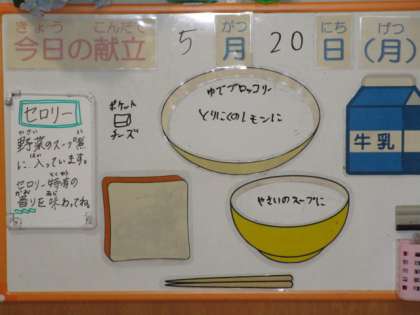 きょう
こんだて
がつ
にち
げつ
今日の献立 5月20日(月)
セロリー
やさい
に
野菜のスープ煮
はい
に、入っています。
とくゆう
セロリー特有の
かお
あじ
香りを味わってね。
ポケット
チーズ
ゆでブロッコリー
とりにくのレモンに
やさいのスープに
牛乳